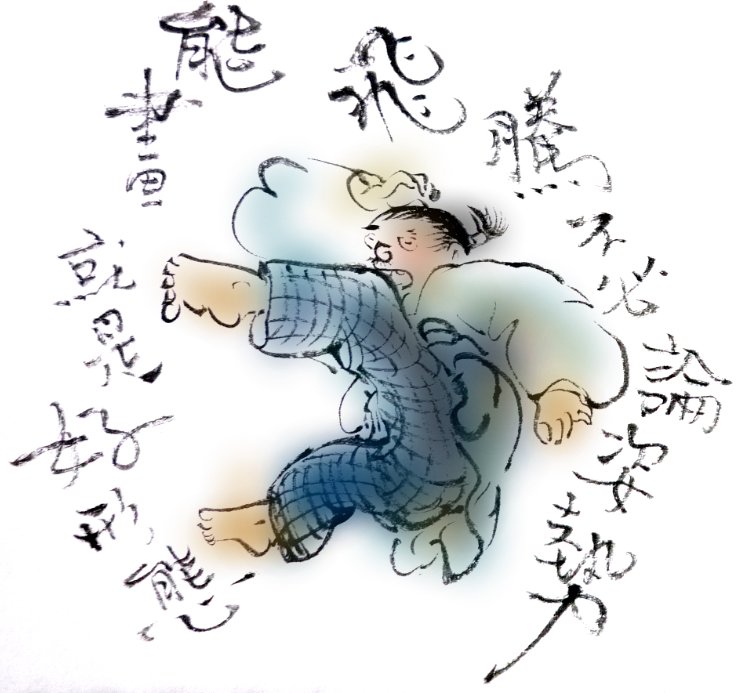 飛騰不必論姿勢
能畫就是好形態